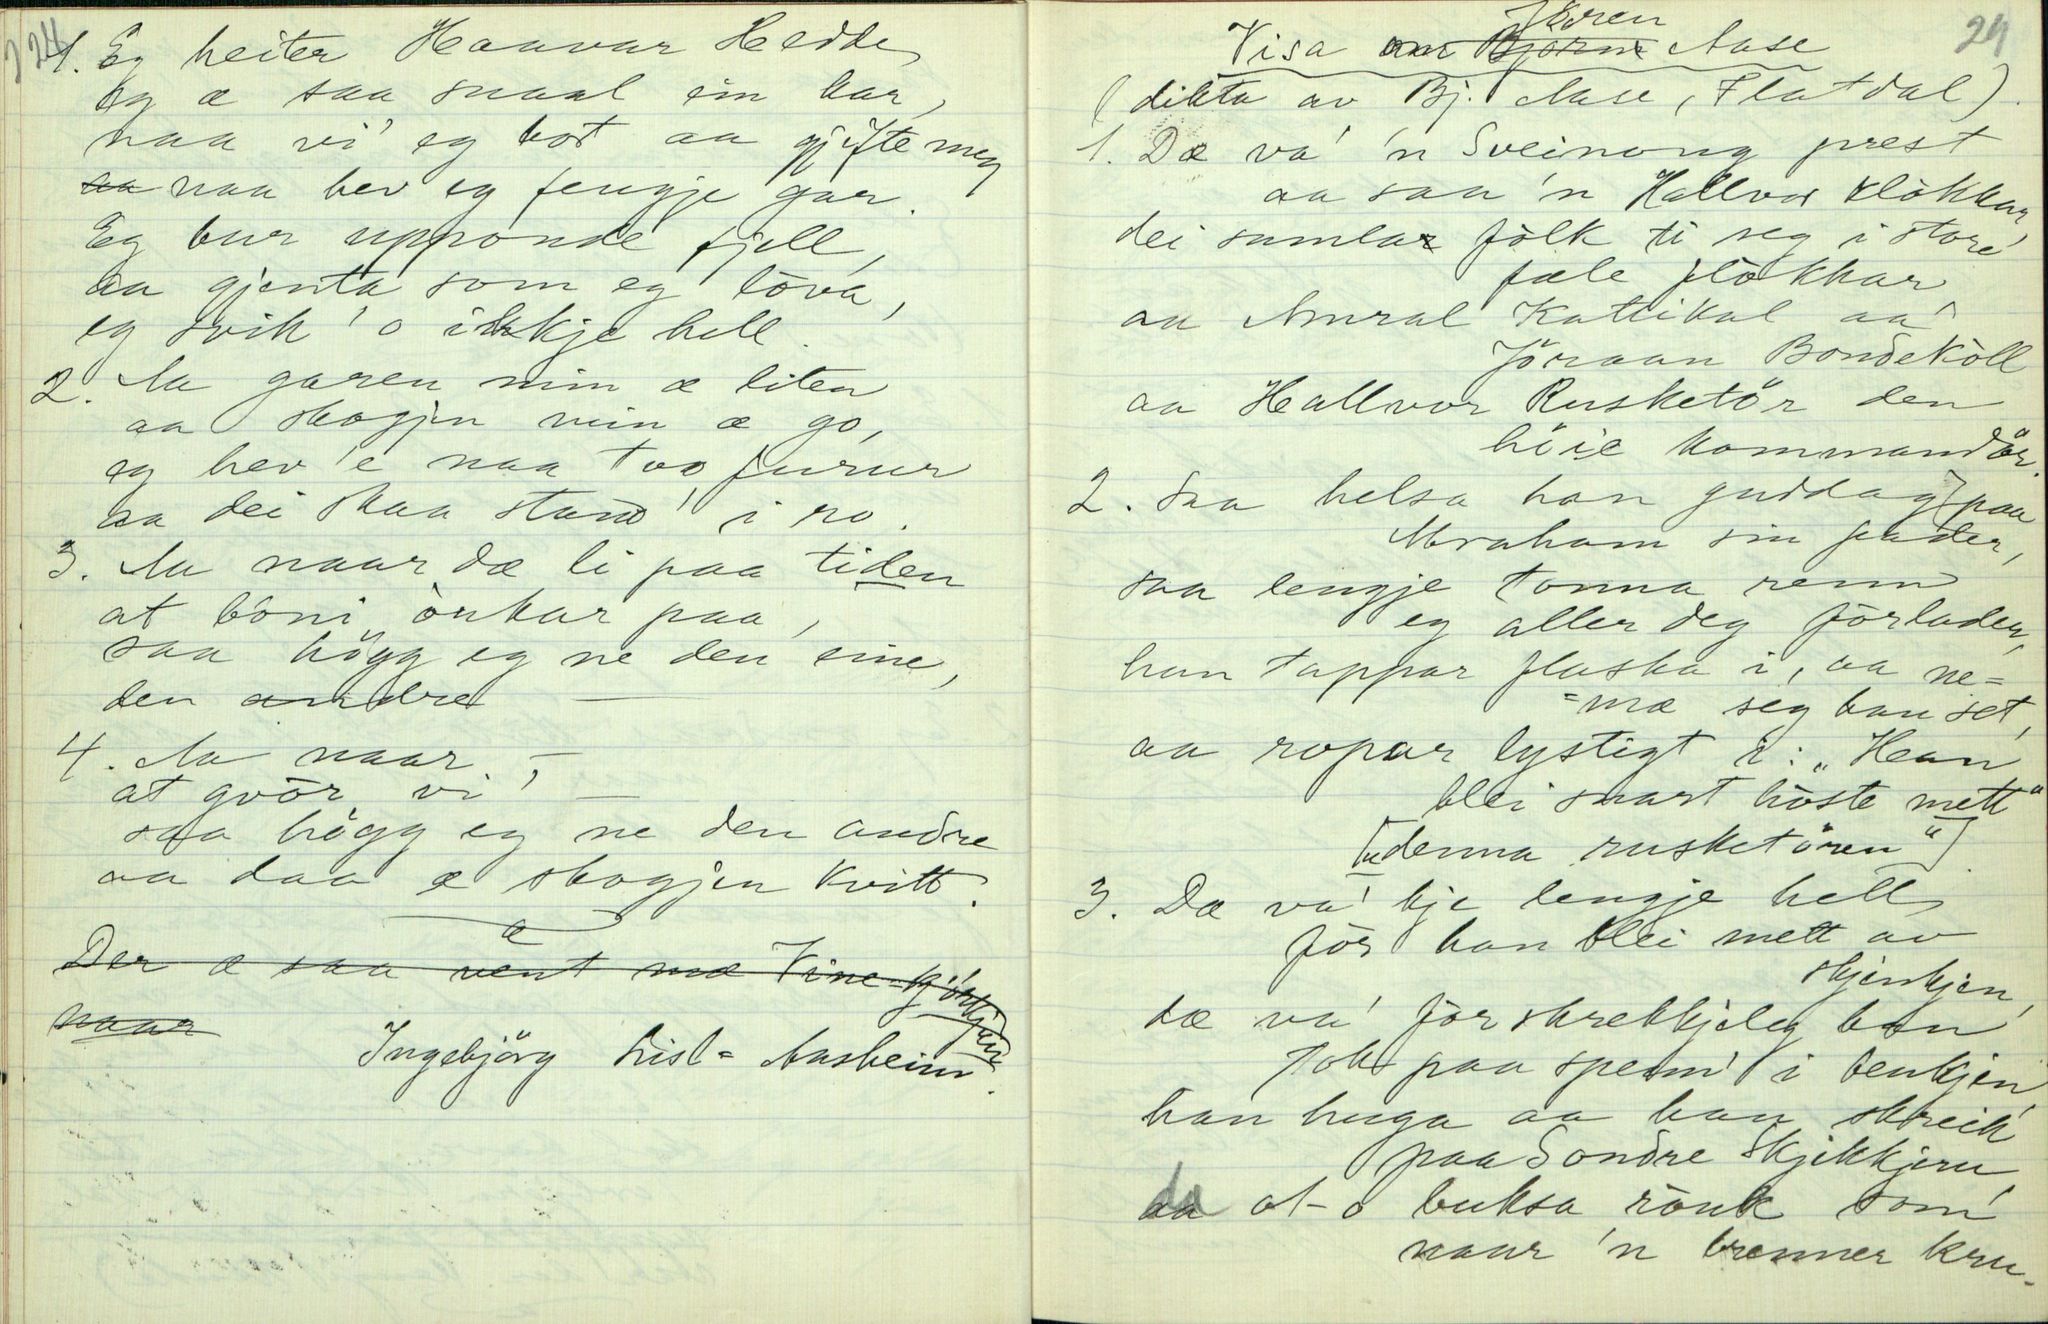 224
1. Eg heiter Haavar Hedde
eg æ saa snaal ein kar,
naa vi' eg bot aa gjifte meg
aa naa hev eg fengje gar.
Eg bur upponde fjell,
aa gjenta som eg lova',
eg svik 'o ikkje hell.
2. Aa garen min æ liten
aa skogjen min æ go,
eg hev 'e naa two furur
aa dei skaa stand' i ro.
3. Aa naar dæ li paa tiden
at böni örkar paa,
saa högg eg ne den eine,
den andre —
4. Aa naar, —
at gvör vi' —
saa högg eg ne den andre
aa daa æ skogjen kvitt.
Der æ saa vent mæ Vine-kjörkjun
naar
Ingebjörg Lisl-Aasheim.
24
Jören
Visa om Björn Aase
(dikta av Bj. Aase, Flatdal).
1. Dæ va' 'n Sveinong prest
aa saa 'n Hallvor klökkar,
dei samlar fölk ti seg i store
fæle flökkar,
aa Amral Kattikal aa
Jöraan Bondeköll
aa Hallvor Rusketör den
höie kommandör.
2. Saa helsa han guddag paa
Abraham sin fader,
saa lengje tonna renn
eg aller deg förlader,
han tappar flaska i, aa ne=
=mæ seg han set,
aa ropar lystigt i: "Han
blei snart höste mett"
["denna rusketören"]
3. Dæ va' kje lengje hell
för han blei mett av
skjenkjen,
dæ va' förskrekkjeleg han
tok paa spenn' i benkjen,
han huga aa han skreik
paa Sondre Skjekkjeru,
da at-o buksa rauk som
naar 'n brenner kru-